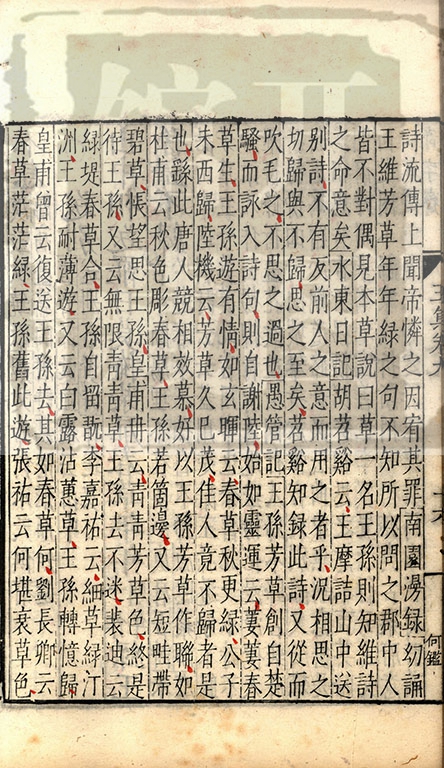 詩流傳上聞帝憐之因宥其罪南園漫録幼誦
王維芳草年年緑之句不知所以問之郡中人
皆不對偶見本草說曰草一名王孫則知維詩
之命意矣水東日記胡苕谿云王摩詰山中送
别詩不有反前人之意而用之者乎況相思之
切歸與不歸思之至矣苕谿知録此詩又從而
吹毛之不思之過也愚管記王孫芳草創自楚
騷而詠入詩句則自謝陸始如靈運云萋萋春
草生王孫遊有情如玄暉云春草秋更緑公子
未西歸陸機云芳草久已茂佳人竟不歸者是
也繇此唐人競相效慕好以王孫芳草作聯如
杜甫云秋色彫春草王孫若箇邊又云短畦帶
碧草悵望思王孫皇甫冉云青青芳草色終是
待王孫又云無限青青草王孫去不迷裴迪云
緑堤春草合王孫自留翫李嘉祐云細草緑汀
洲王孫耐薄遊又云白露沾蕙草王孫轉憶歸
皇甫曾云復送王孫去其如春草何劉長卿云
春草茫茫緑王孫舊此遊張祐云何堪衰草色
何鑑